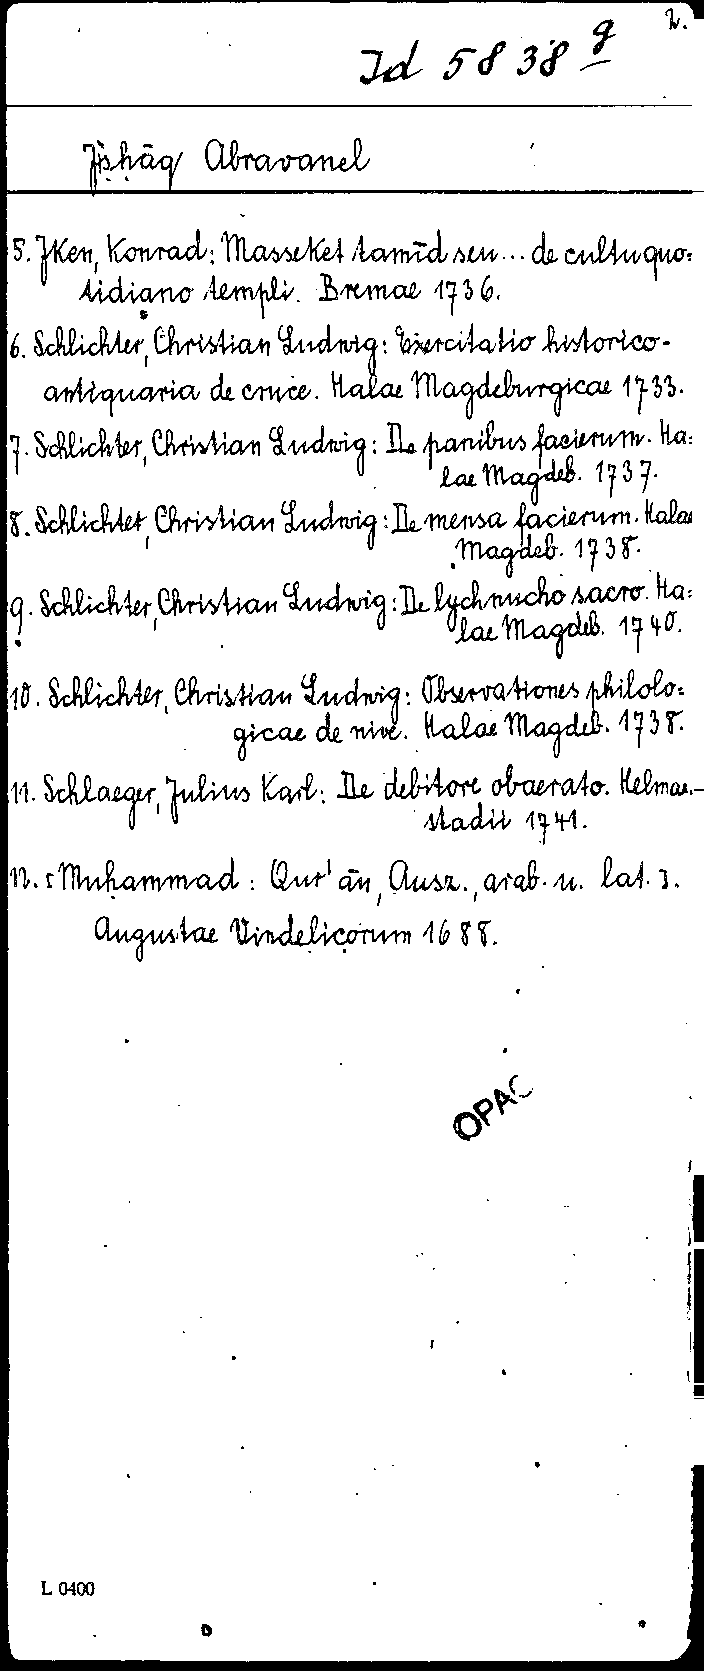 2.
Id 5838 g
Jiṣḥāq Abravanel
5. Jken, Konrad: Masseket tamīd seu... de cultu quo=
tidiano templi. Bremae 1736.
6. Schlichter, Christian Ludwig: Exercitatio historico-
antiquaria de cruce. Halae Magdeburgicae 1733.
7. Schlichter, Christian Ludwig: De panibus facierum. Ha=
lae Magdeb. 1737.
8. Schlichter, Christian Ludwig: De mensa facierum. Halae
Magdeb. 1738.
9. Schlichter, Christian Ludwig: De lychnucho sacro. Ha=
lae Magdeb. 1740.
10. Schlichter, Christian Ludwig: Observationes philolo=
gicae de nive. Halae Magdeb. 1738.
11. Schlaeger, Julius Karl: De debitore obaerato. Helmae-
stadii 1741.
12. Muḥammad: Qur'ān, Ausz., arab. u. lat.
Augustae Vindelicorum 1688.
OPAC
L 0400